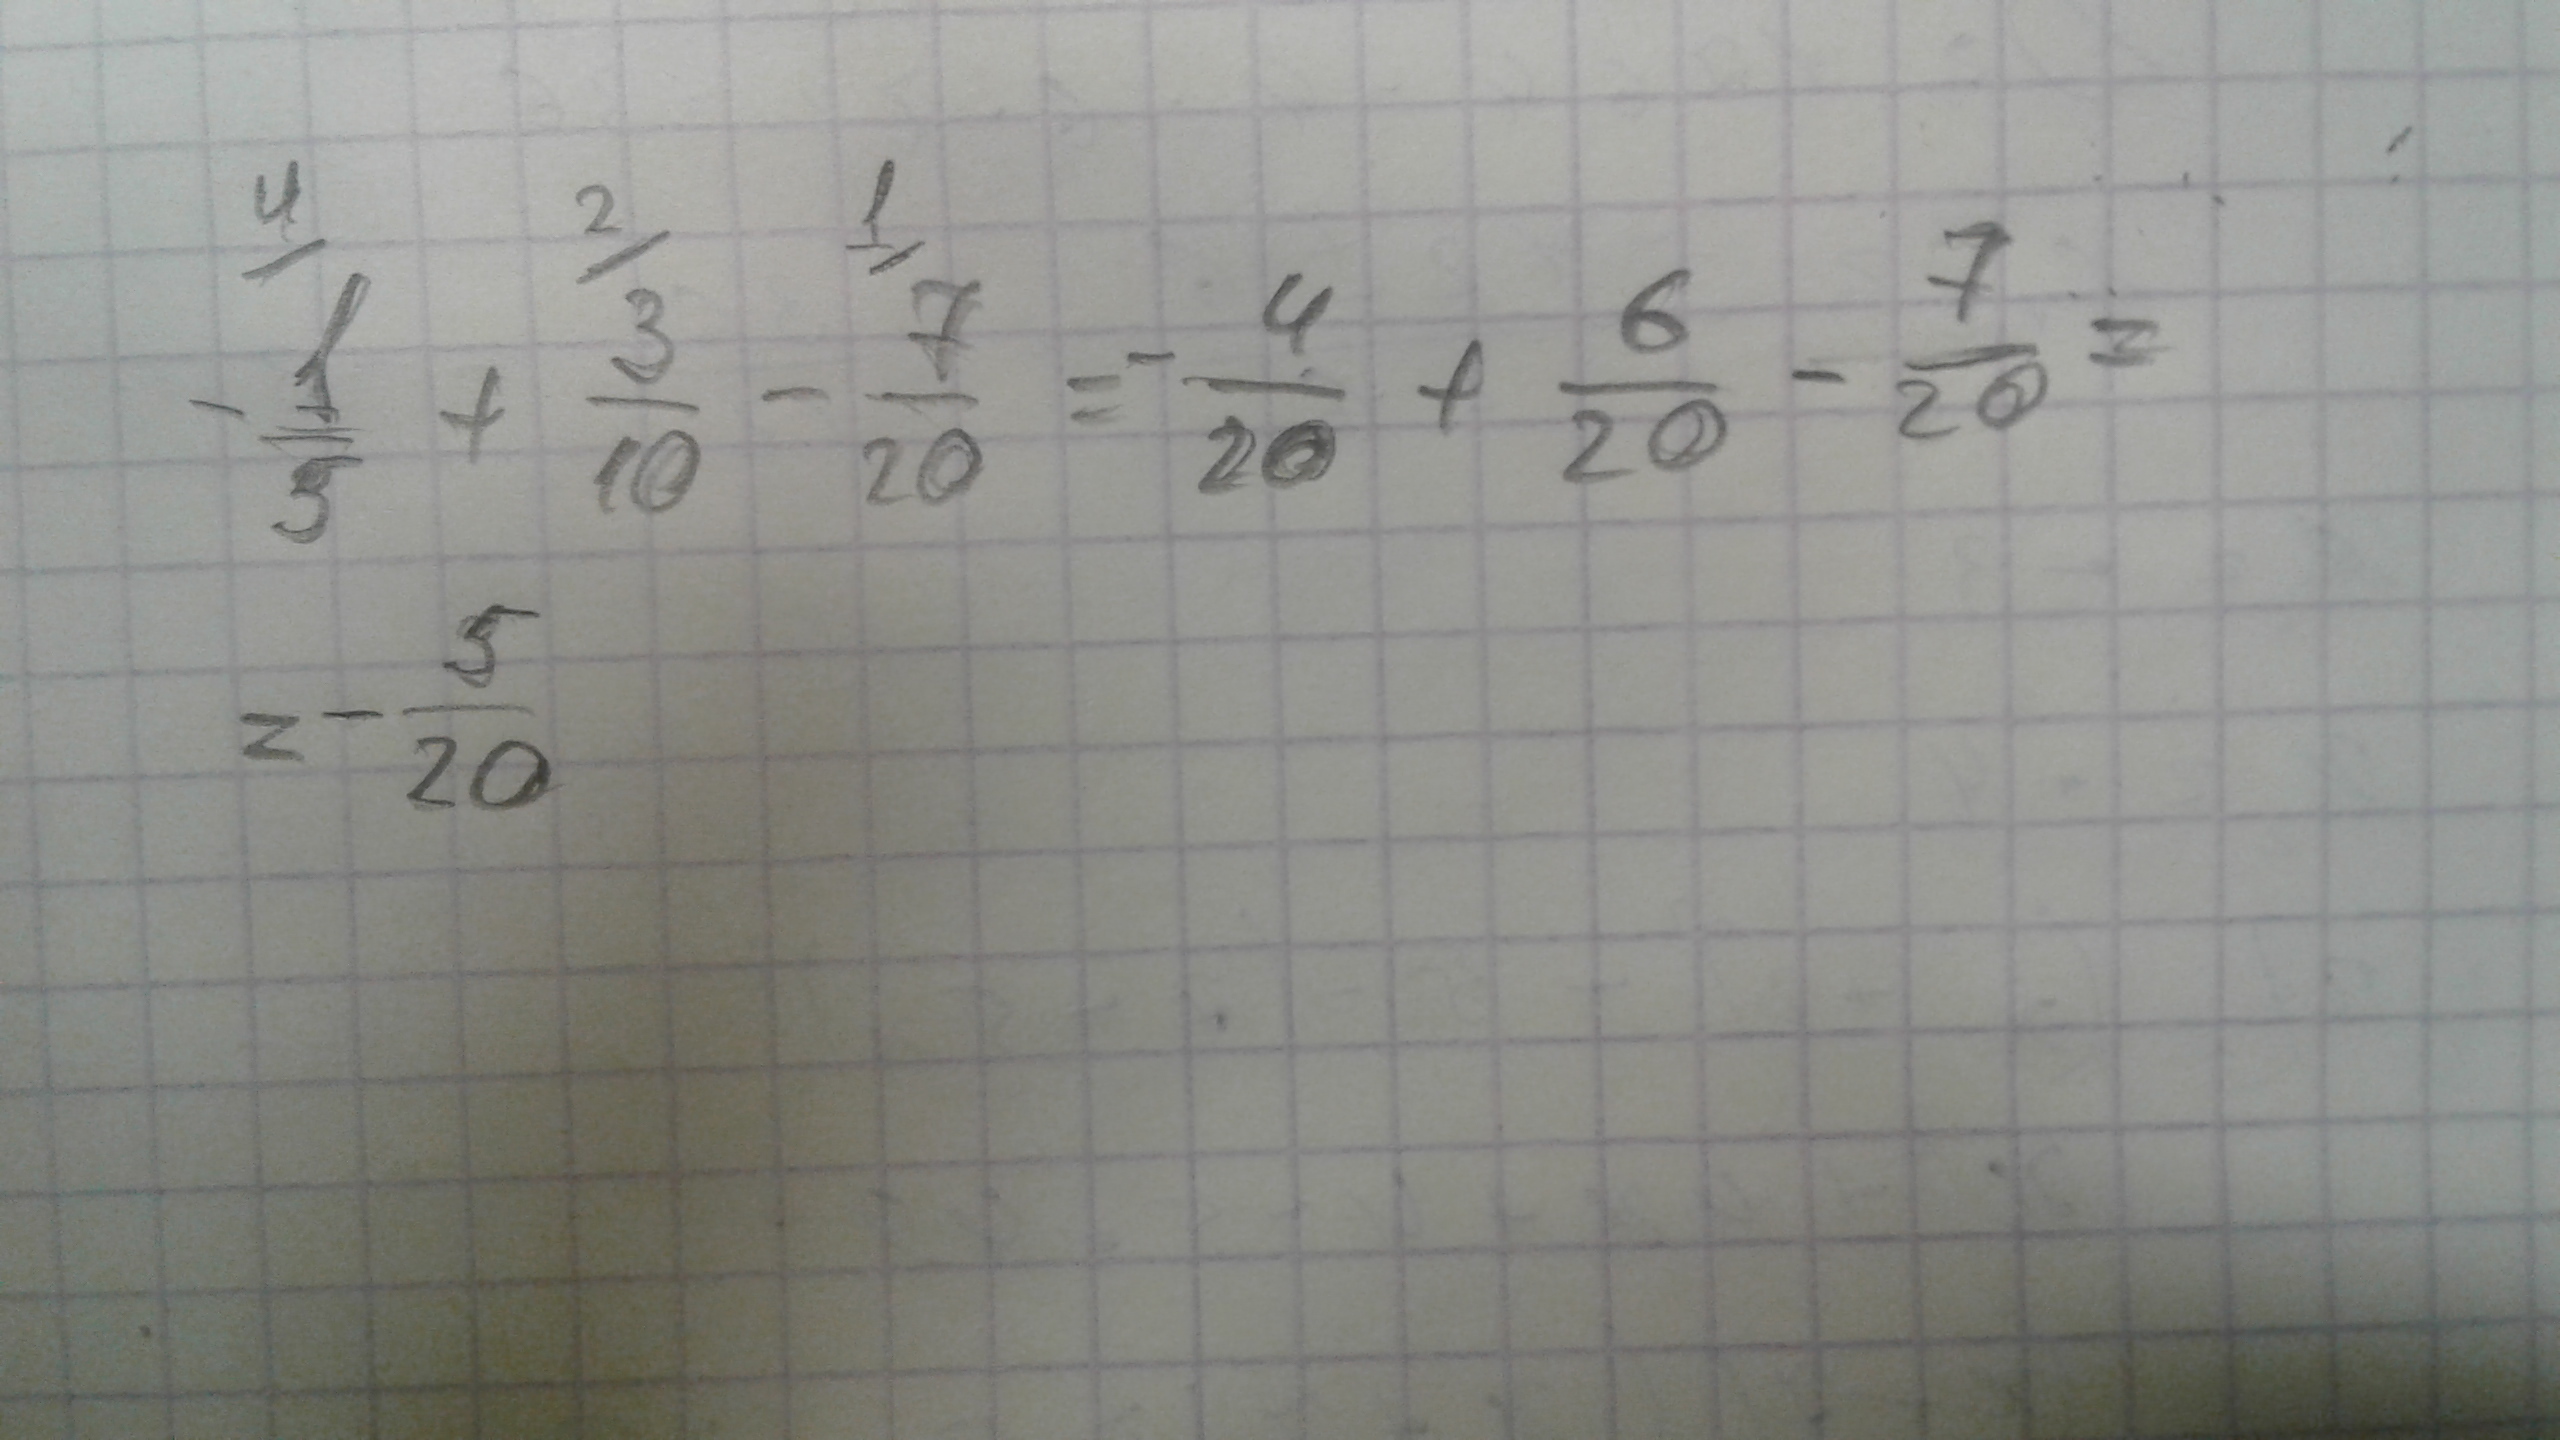 4/ 2/ 1/
- 1/5 + 3/10 - 7/20 = - 4/20 + 6/20 - 7/20 =
= - 5/20